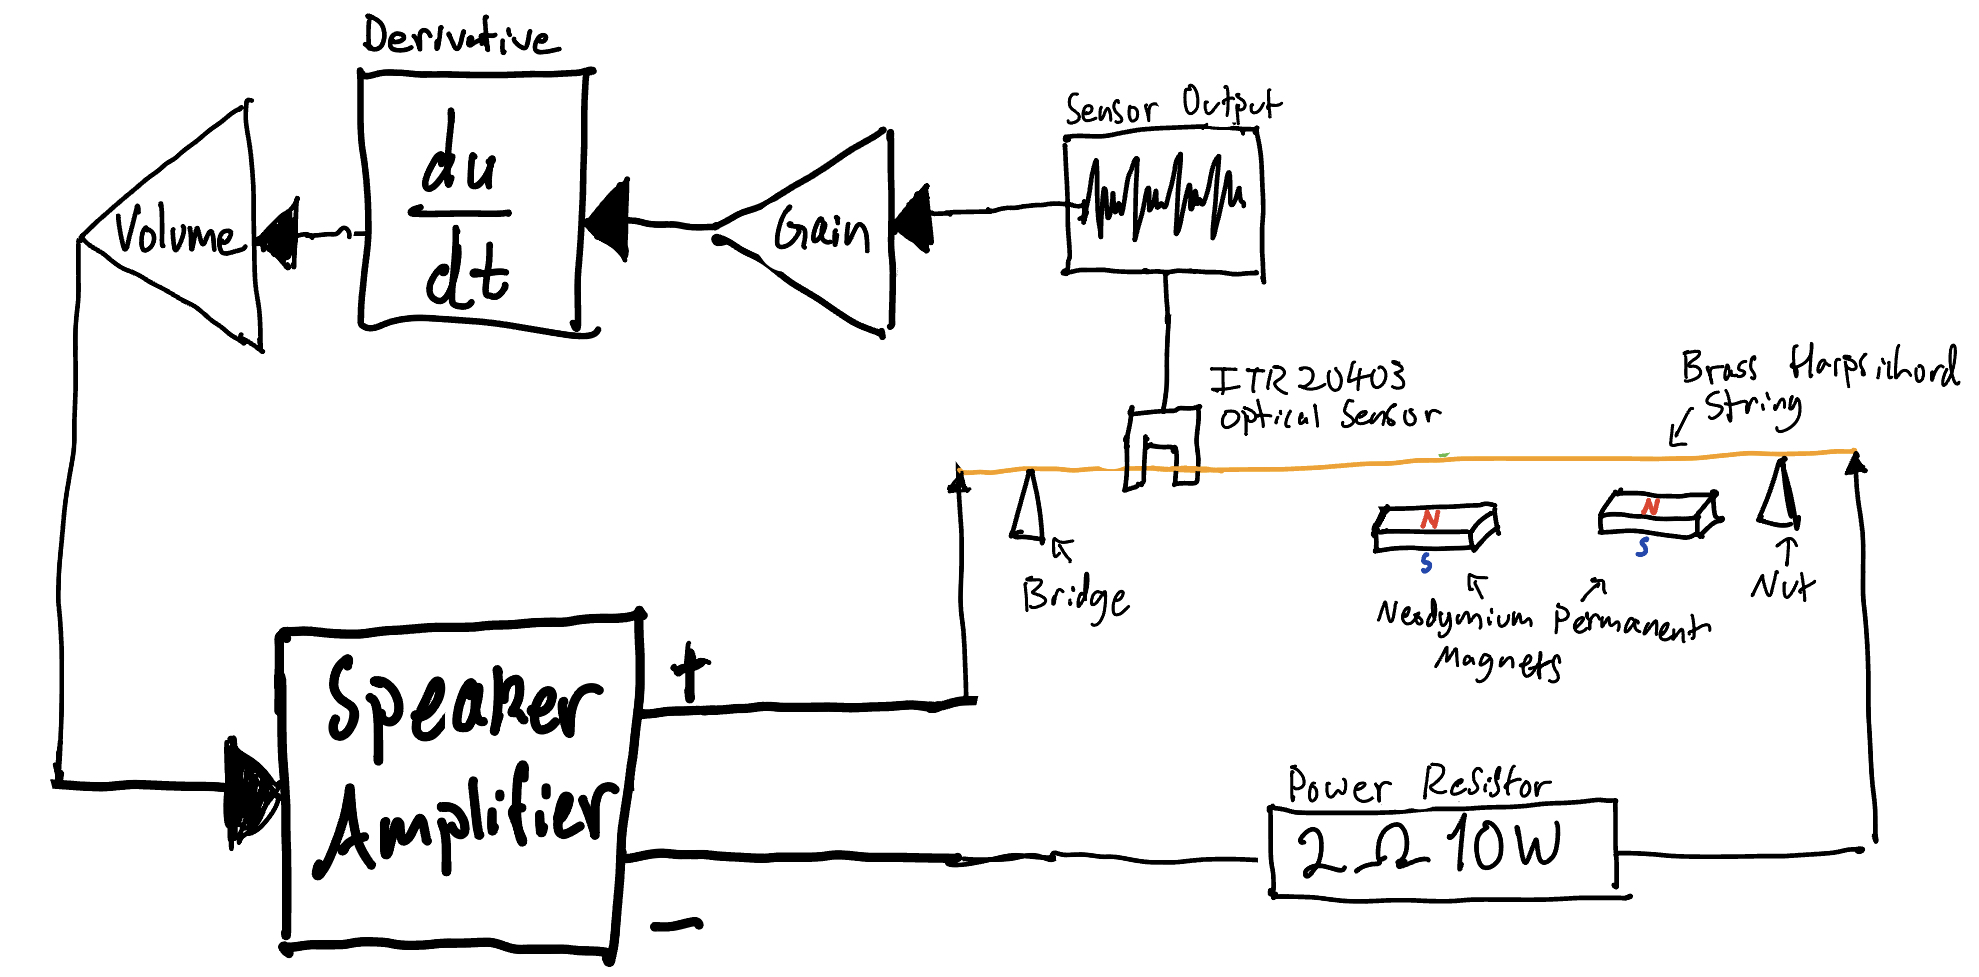 Derivative
du
dt
Volume
Gain
Sensor Output
ITR20403
Optical Sensor
Brass Harpsichord
String
N
S
N
S
Bridge
Neodymium Permanent
Magnets
Nut
Speaker
Amplifier
+
-
Power Resistor
2Ω 10W